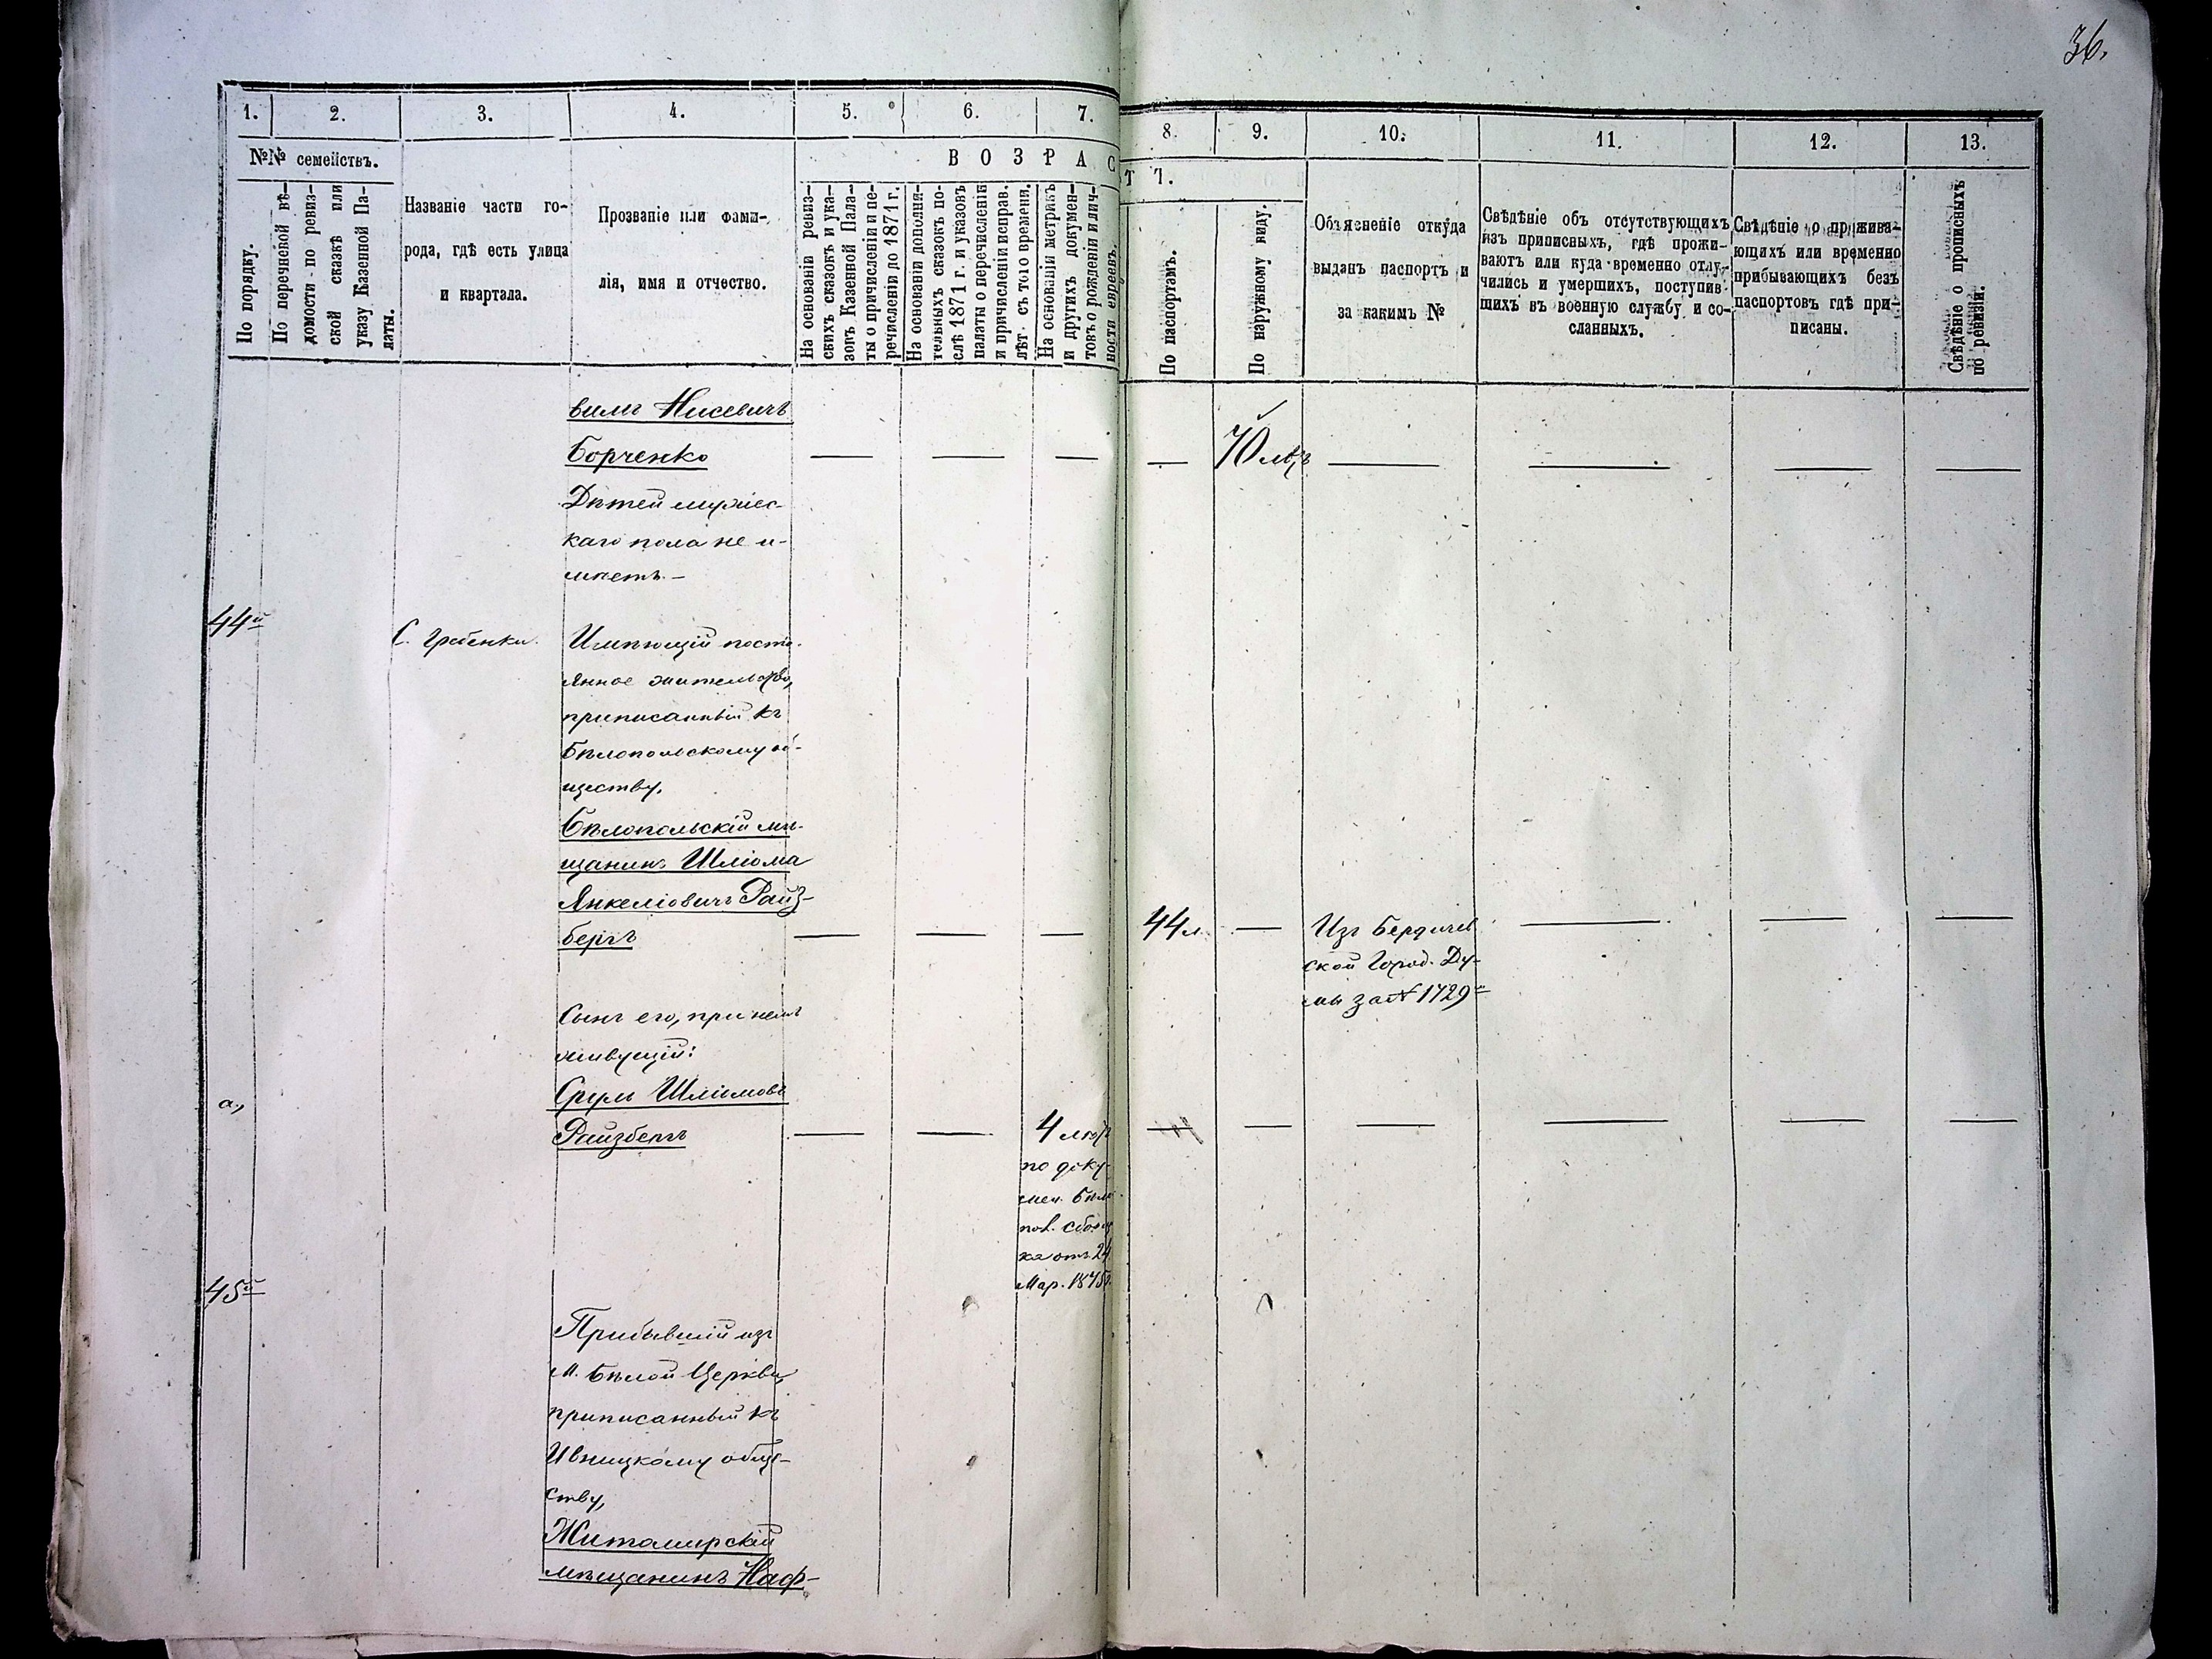 36.
1. 2. 3. 4. 5. 6. 7. 8. 9. 10. 11. 12. 13.
№№ семействъ.
По порядку.
По перечневой вѣ-
домости - по ревиз-
ской сказкѣ или
указу Казенной Па-
латы.
Названіе части го-
рода, гдѣ есть улица
и квартала.
Прозваніе или фами-
лія, имя и отчество.
ВОЗРАСТЪ.
На основаніи ревиз-
скихъ сказокъ и ука-
зовъ Казенной Пала-
ты о причисленіи и пе-
речисленіи до 1871 г.
На основаніи дополни-
тельныхъ сказокъ по-
слѣ 1871 г. и указовъ
палаты о перечисленіи
и причисленіи исправ.
лѣт. съ того времени.
На основаніи метрикъ
и другихъ докумен-
товъ о рожденіи и лич-
ности евреевъ.
По паспортамъ.
По наружному виду.
Объясненіе откуда
выданъ паспортъ и
за какимъ №
Свѣдѣніе объ отсутствующихъ
изъ приписныхъ, гдѣ прожи-
ваютъ или куда временно отлу-
чились и умершихъ, поступив-
шихъ въ военную службу и со-
сланныхъ.
Свѣдѣніе о прожива-
ющихъ или временно
прибывающихъ безъ
паспортовъ гдѣ при-
писаны.
Свѣдѣніе о прописныхъ
по ревизіи.
вилъ Нисевичъ
Борченко — — — — 70 лѣтъ — — — —
Дѣтей мужес-
каго пола не и-
мѣетъ. —
44й
С. Гребенки. Имѣющій посто-
янное жительство,
приписанный къ
Бѣлопольскому об-
ществу,
Бѣлопольскій мѣ-
щанинъ Шліома
Янкеліовичъ Райз-
бергъ — — — 44 л. — Изъ Бердичев
ской Город. Ду-
мы за № 1729й — — —
Сынъ его, при немъ
живущій:
а, Сруль Шліомовъ
Райзбергъ — — 4 лѣтъ — — — — — —
по доку-
мен. Бѣло-
пол. сборщ
ка отъ 24
Мар. 1875г.
45й
Прибывшій изъ
м. Бѣлой Церкви,
приписанный къ
Ивницкому обще-
ству,
Житомирскій
мѣщанинъ Наф-